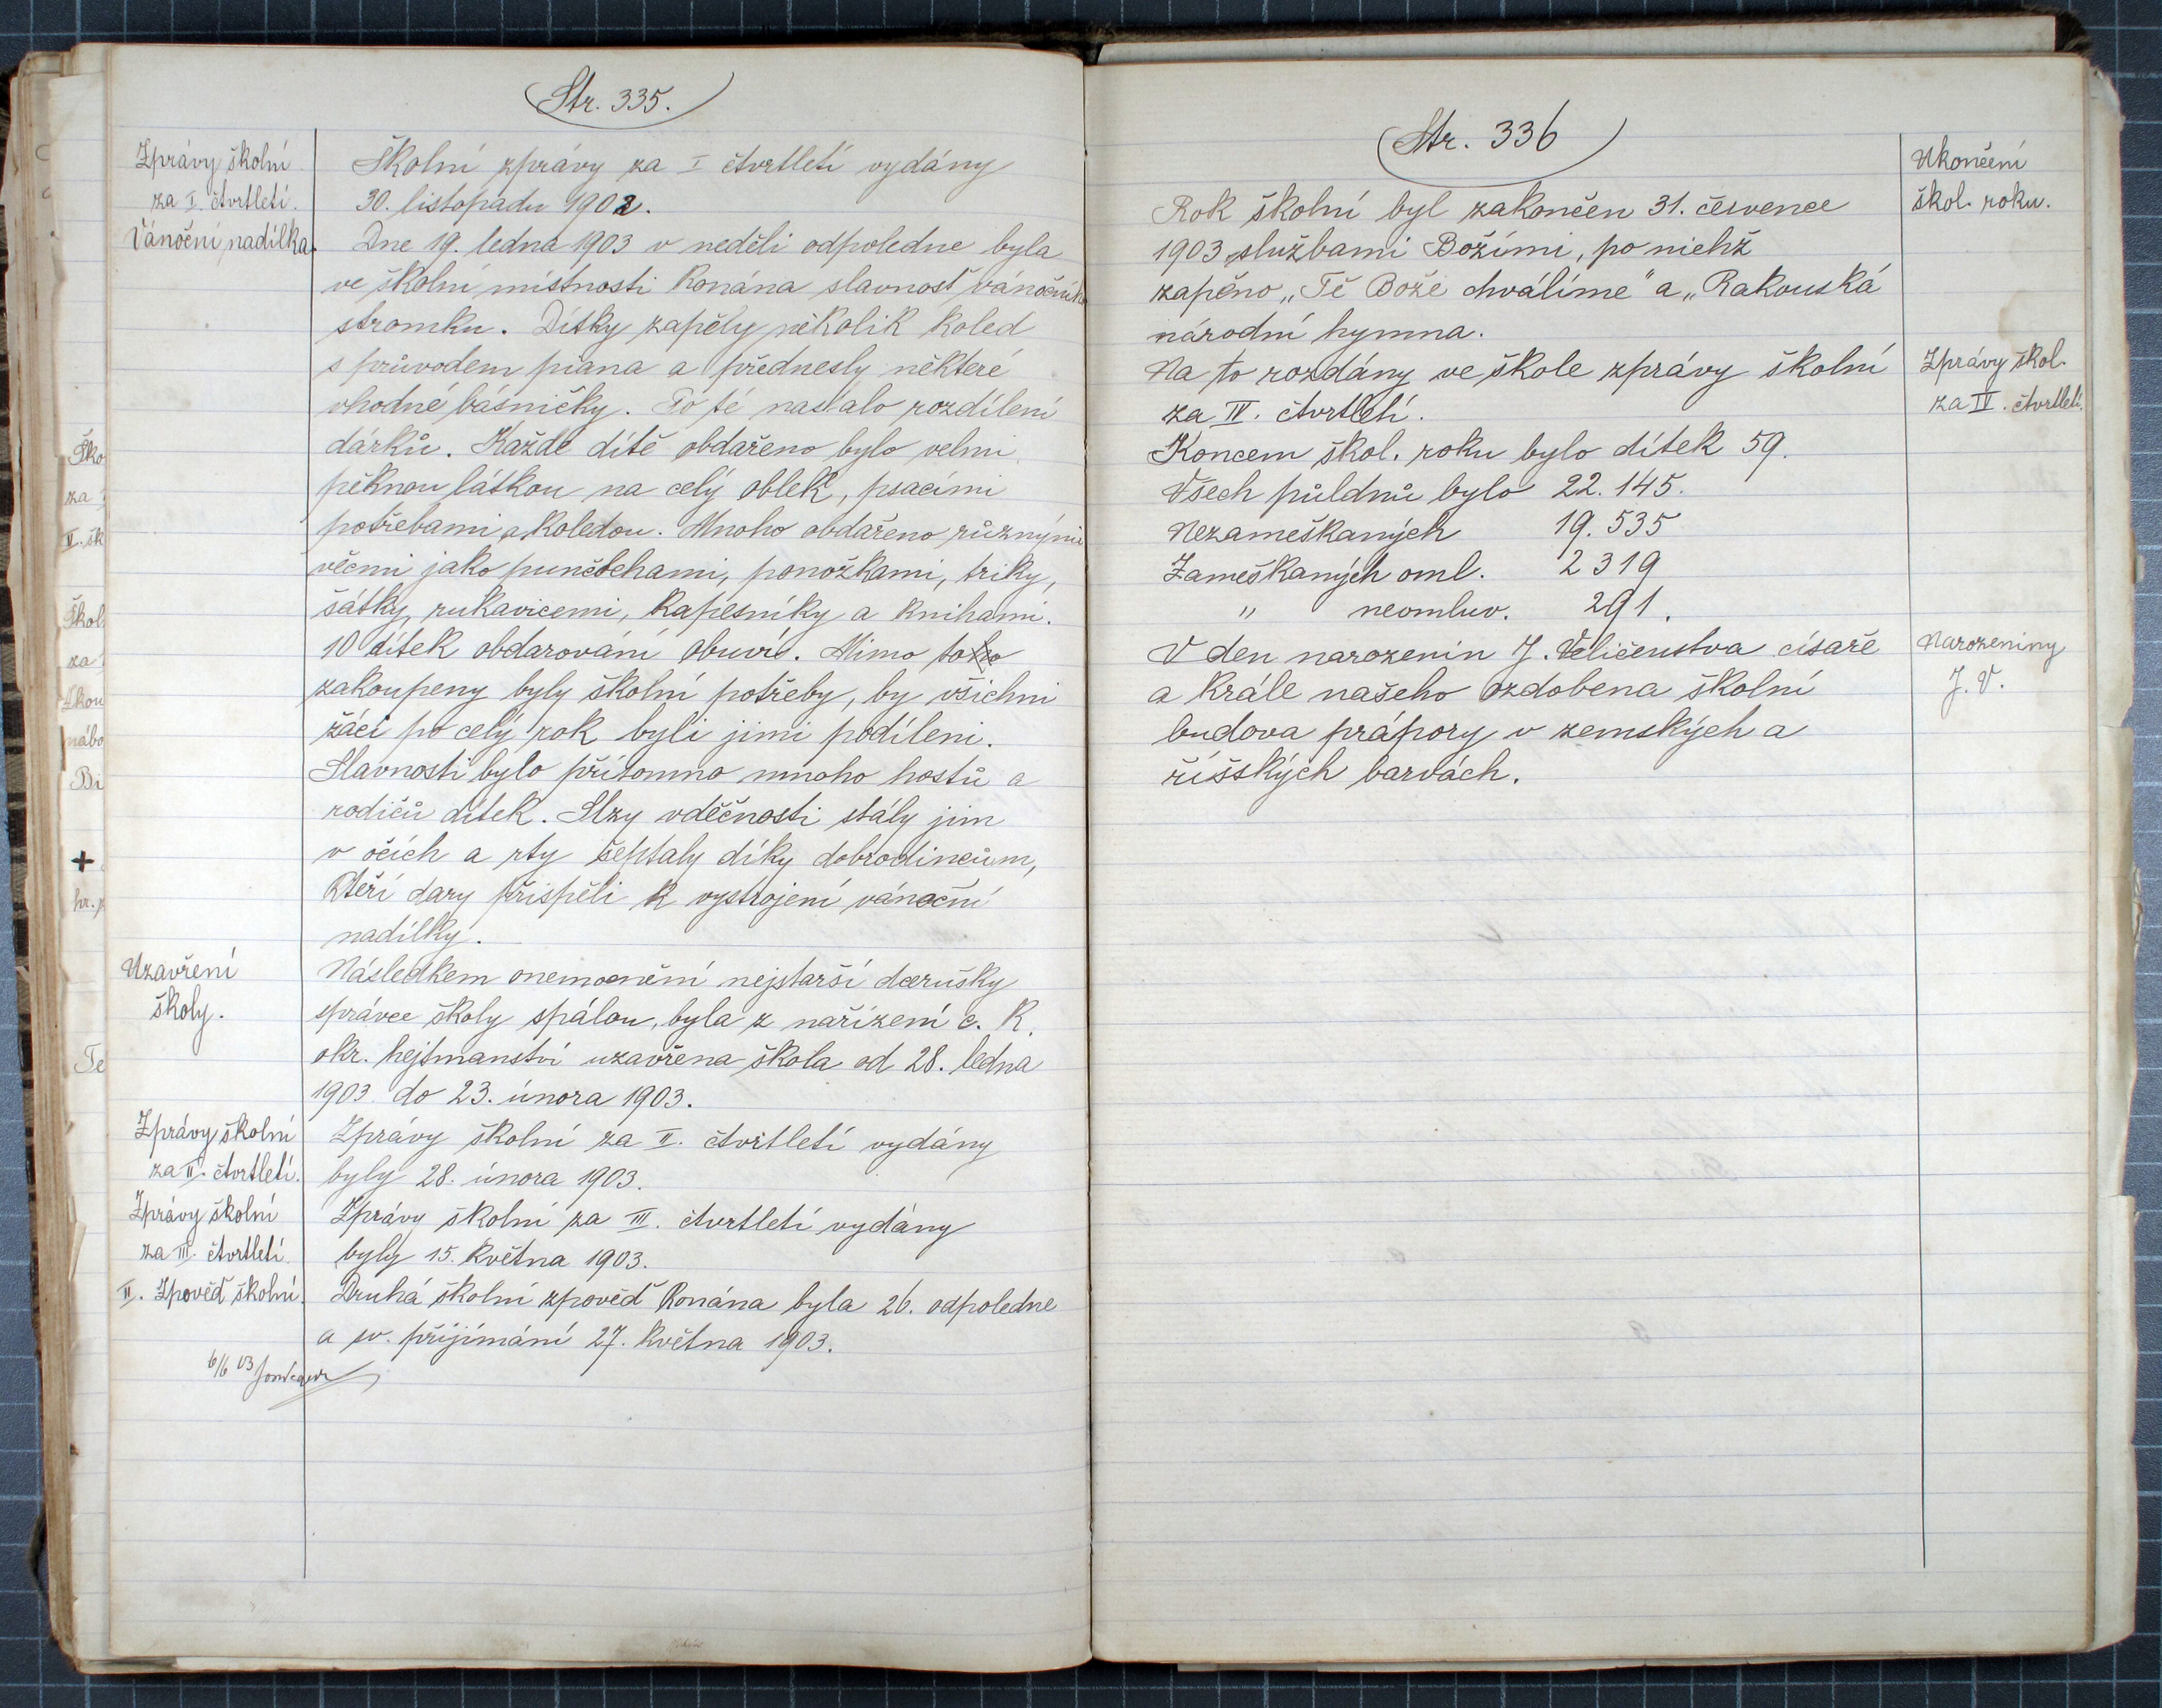 Str. 335.
Zprávy školní
za I. čtvrtletí.
Školní zprávy za I čtvrtletí vydány
30. listopadu 1902.
Vánoční nadílka.
Dne 19. ledna 1903 v neděli odpoledne byla
ve školní místnosti konána slavnost vánočního
stromku. Dítky zapěly několik koled
s průvodem piana a přednesly některé
vhodné básničky. Po té nastalo rozdílení
dárků. Každé dítě obdařeno bylo velmi
pěknou látkou na celý oblek, psacími
potřebami a koledou. Mnoho obdařeno různými
věcmi jako punčochami, ponožkami, triky,
šátky, rukavicemi, kapesníky a knihami.
10 dítek obdarování obuví. Mimo to
zakoupeny byly školní potřeby, by všichni
žáci po celý rok byli jimi podíleni.
Slavnosti bylo přítomno mnoho hostů a
rodičů dítek. Slzy vděčnosti stály jim
v očích a rty šeptaly díky dobrodincům,
kteří dary přispěli k vystrojení vánoční
nadílky.
Uzavření
školy.
Následkem onemocnění nejstarší dcerušky
správce školy spálou, byla z nařízení c. k.
okr. hejtmanství uzavřena škola od 28. ledna
1903 do 23. února 1903.
Zprávy školní
za II. čtvrtletí.
Zprávy školní za II. čtvrtletí vydány
byly 28. února 1903.
Zprávy školní
za III. čtvrtletí
Zprávy školní za III. čtvrtletí vydány
byly 15. května 1903.
II. Zpověď školní.
Druhá školní zpověď konána byla 26. odpoledne
a sv. přijímání 27. května 1903.
6/6 03
Str. 336
Ukončení
škol. roku.
Rok školní byl zakončen 31. července
1903 službami Božími, po nichž
zapěno „Tě Bože chválíme" a „Rakouská
národní hymna.
Zprávy škol.
za IV. čtvrtletí.
Na to rozdány ve škole zprávy školní
za IV. čtvrtletí.
Koncem škol. roku bylo dítek 59.
Všech půldnů bylo 22.145.
Nezameškaných 19.535
Zameškaných oml. 2319
" neomluv. 291.
Narozeniny
J. V.
V den narozenin J. Veličenstva císaře
a krále našeho ozdobena školní
budova prápory v zemských a
říšských barvách.